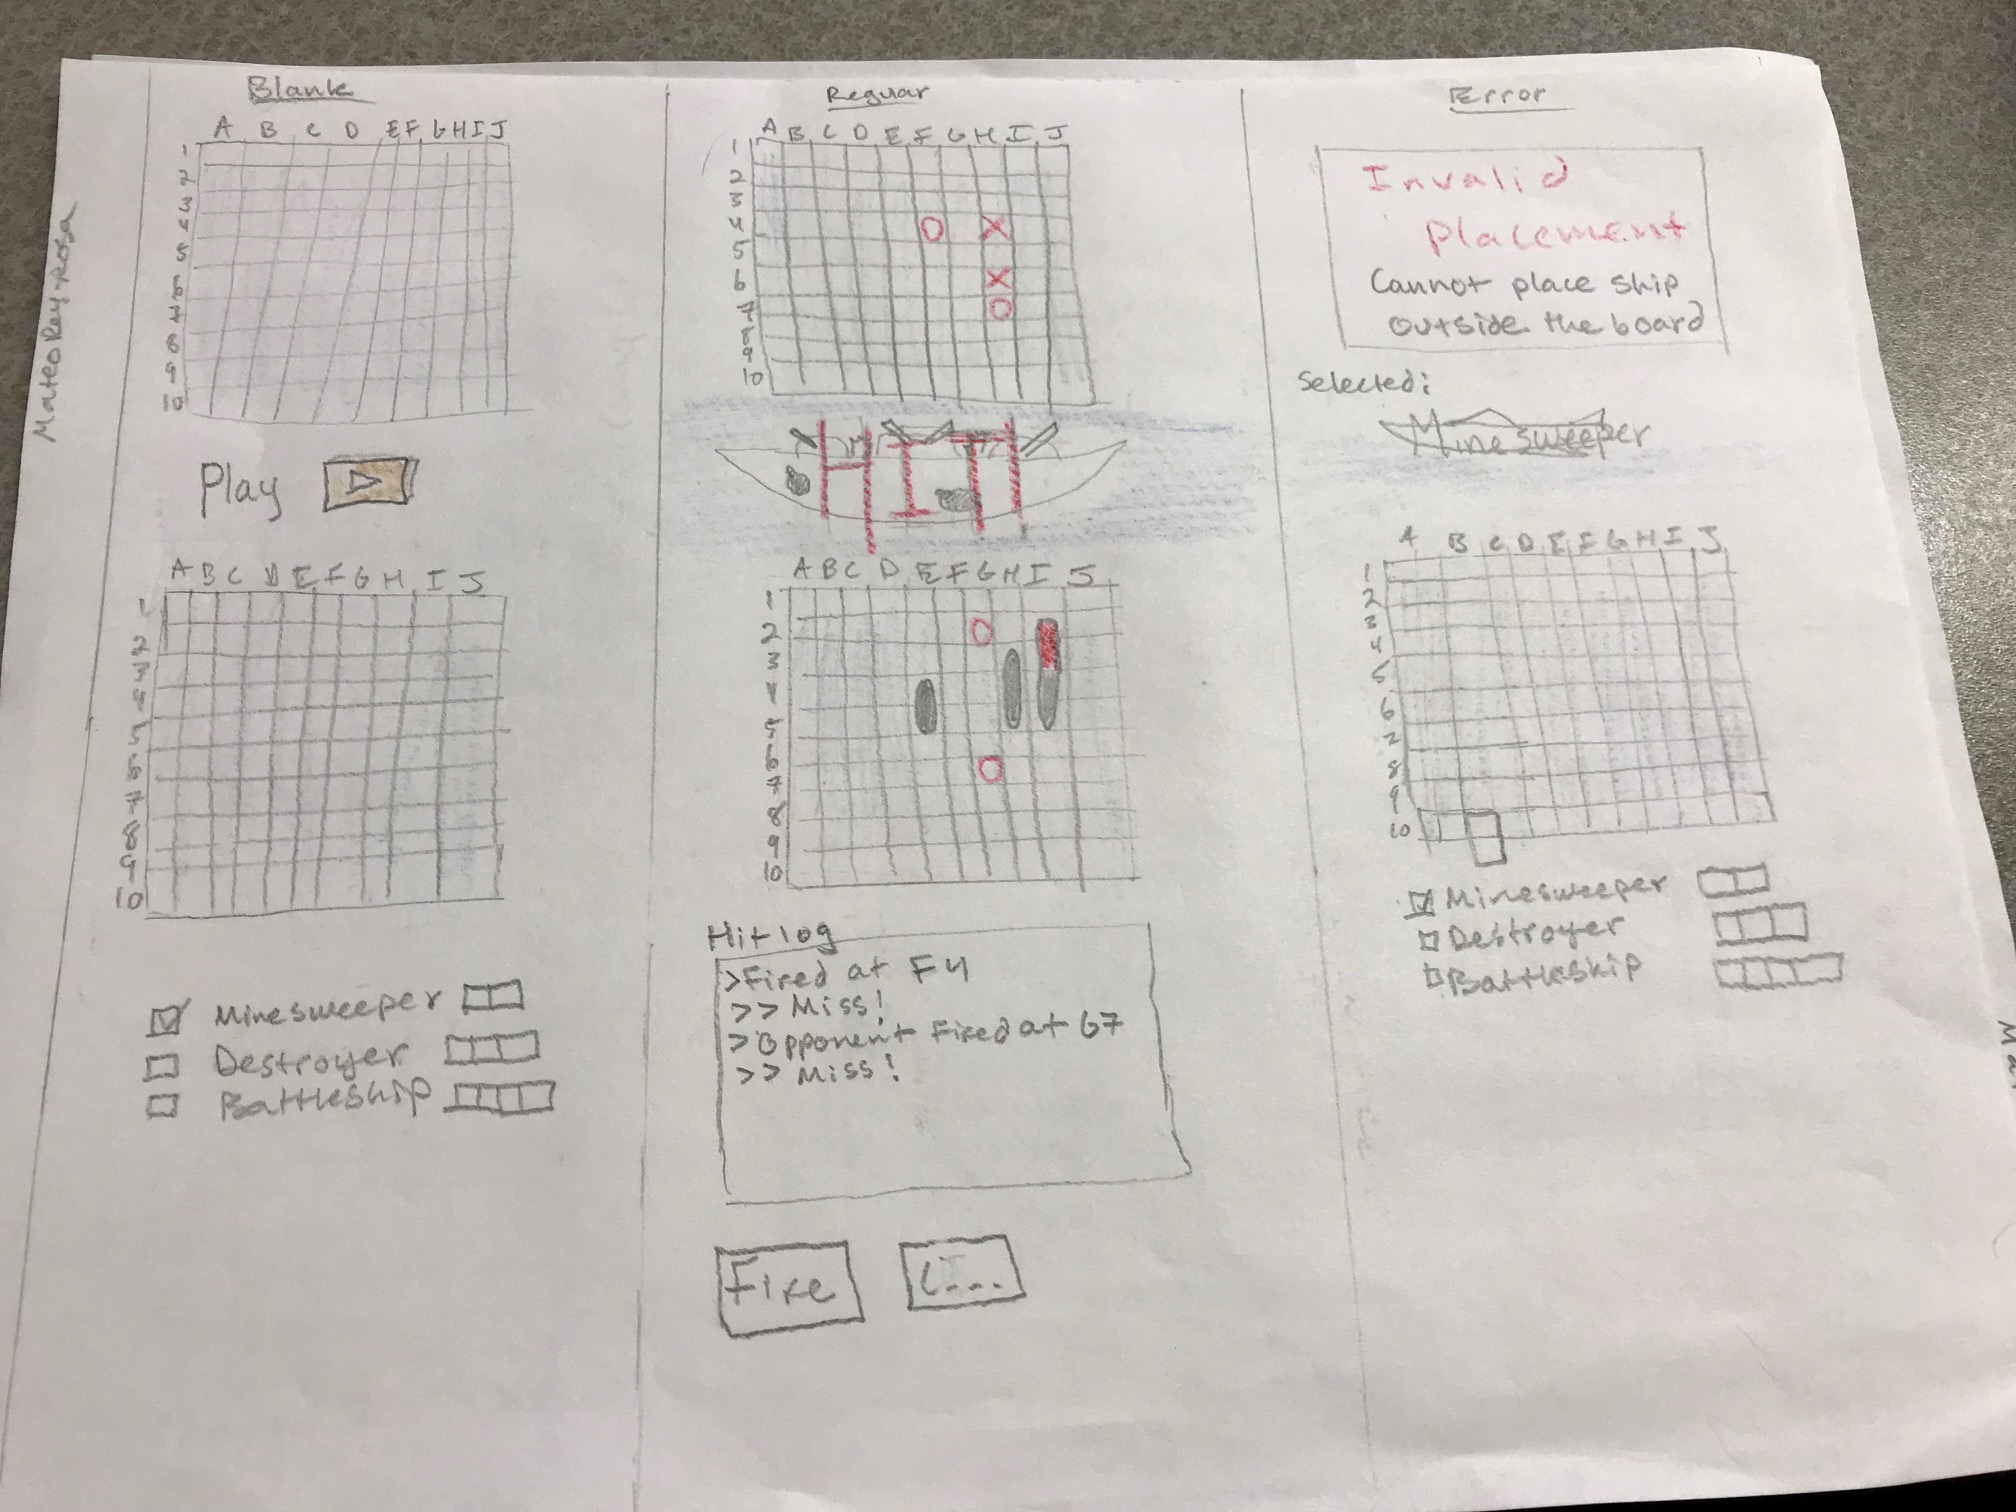 Mateo Rey-Rosa
Blank
A B C D E F G H I J
1
2
3
4
5
6
7
8
9
10
Play
A B C D E F G H I J
1
2
3
4
5
6
7
8
9
10
Minesweeper
Destroyer
Battleship
Regular
A B C D E F G H I J
1
2
3
4
5
6
7
8
9
10
A B C D E F G H I J
1
2
3
4
5
6
7
8
9
10
Hit log
>Fired at F4
>> Miss!
>Opponent fired at G7
>> Miss!
Fire
Error
Invalid
placement
Cannot place ship
outside the board
Selected:
Minesweeper
A B C D E F G H I J
1
2
3
4
5
6
7
8
9
10
Minesweeper
Destroyer
Battleship